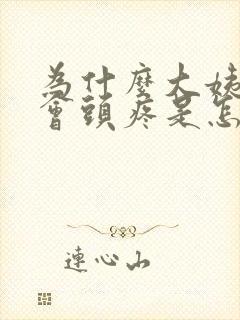 為什麼大姨
會頭疼是怎
連心山